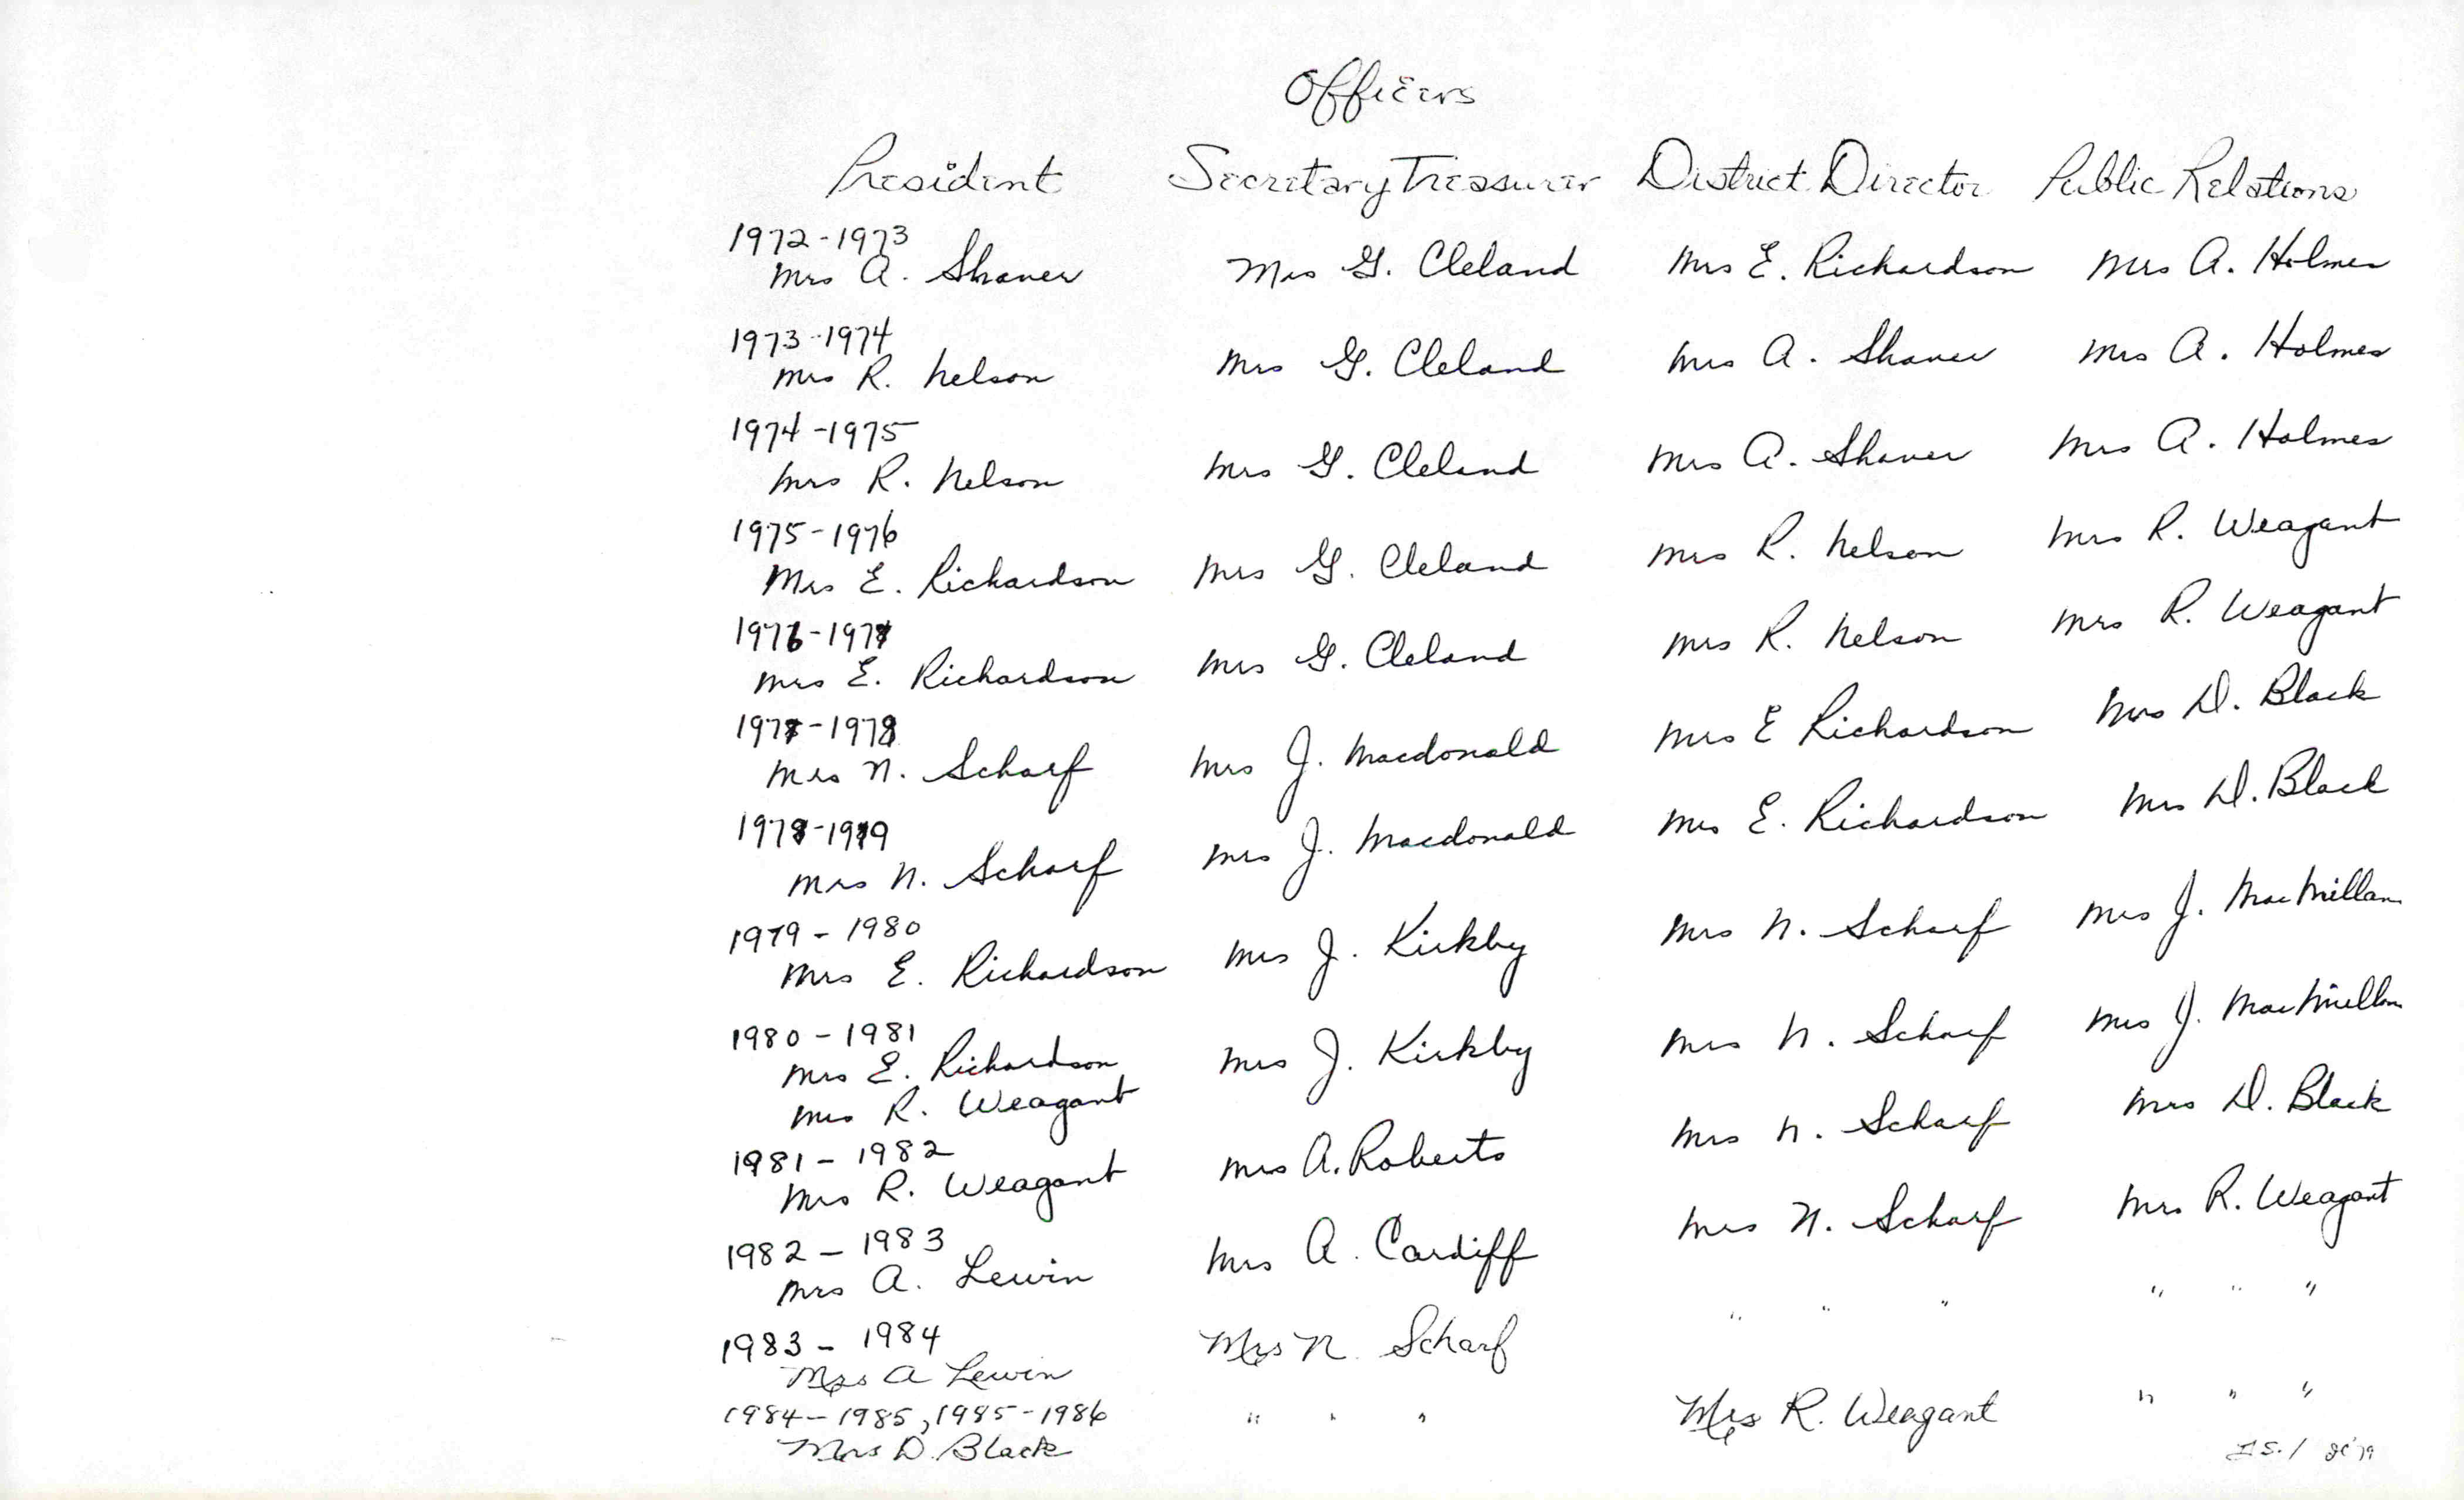 Officers
President Secretary Treasurer District Director Public Relations
1972-1973
Mrs A. Shaver Mrs G. Cleland Mrs E. Richardson Mrs A. Holmes
1973-1974
Mrs R. Nelson Mrs G. Cleland Mrs A. Shaver Mrs A. Holmes
1974-1975
Mrs R. Nelson Mrs G. Cleland Mrs A. Shaver Mrs A. Holmes
1975-1976
Mrs E. Richardson Mrs G. Cleland Mrs R. Nelson Mrs R. Weagant
1976-1977
Mrs E. Richardson Mrs G. Cleland Mrs R. Nelson Mrs R. Weagant
1977-1978
Mrs N. Scharf Mrs J. Macdonald Mrs E Richardson Mrs D. Black
1978-1979
Mrs N. Scharf Mrs J. Macdonald Mrs E. Richardson Mrs D. Black
1979-1980
Mrs E. Richardson Mrs J. Kirkby Mrs N. Scharf Mrs J. MacMillan
1980-1981
Mrs E. Richardson Mrs J. Kirkby Mrs N. Scharf Mrs J. MacMillan
Mrs R. Weagant
1981-1982
Mrs R. Weagant Mrs A. Roberts Mrs N. Scharf Mrs D. Black
1982-1983
Mrs A. Lewin Mrs A. Cardiff Mrs N. Scharf Mrs R. Weagant
1983-1984
Mrs A Lewin Mrs N Scharf " " " " " "
1984-1985, 1985-1986
Mrs D. Black " " " Mrs R. Weagant " " "